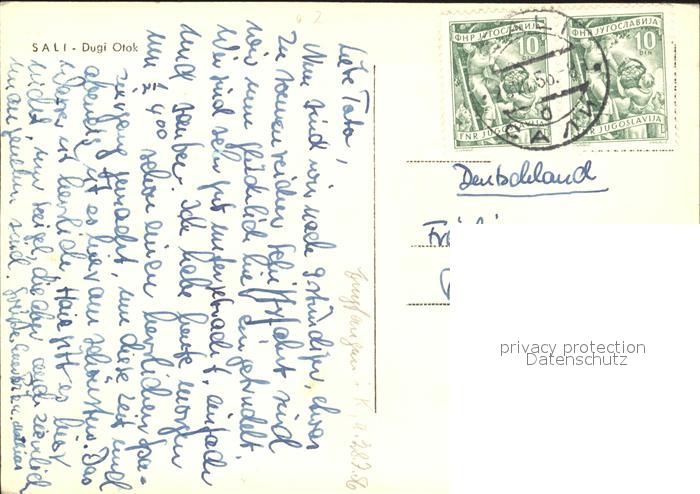 SALI - Dugi Otok
Liebe Tata,
Nun sind wir nach 9 stündiger, etwas
zu sonnenreicher Schiffsfahrt sind
wir nun glücklich hier eingetrudelt.
Wir sind sehr gut untergebracht, einfach
und sauber. Ich habe heute morgen
um ½ 400 schon einen herrlichen Spa-
ziergang gemacht, um diese Zeit und
abends ist es hier am schönsten. Das
Wasser ist herrlich. Haie gibt es hier
nicht, nur Seeigel, die aber auch ziemlich
unangenehm sind.
ФНР ЈУГОСЛАВИЈА
10
DIN
FNR JUGOSLAVIJA
ФНР ЈУГОСЛАВИЈА
10
DIN
FNR JUGOSLAVIJA
Deutschland
privacy protection
Datenschutz